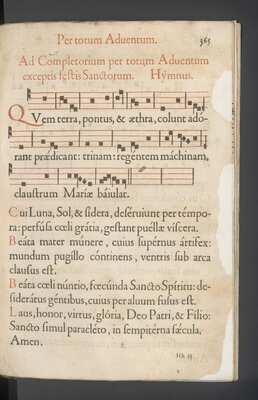 Per totum Aduentum. 365
Ad Completorium per totum Aduentum
exceptis festis Sanctorum. Hymnus.
QVem terra, pontus, & æthra, colunt ado-
rant prǽdicant: trinam regentem máchinam,
claustrum Mariæ báiulat.
Cui Luna, Sol, & sídera, deséruiunt per témpo-
ra: perfúsa cœli grátia, gestant puéllæ víscera.
Beáta mater múnere, cuius supérnus ártifex:
mundum pugíllo cóntinens, ventris sub arca
clausus est.
Beáta cœli núntio, fœcúnda Sancto Spíritu: de-
siderátus géntibus, cuius per aluum fusus est.
Laus, honor, virtus, glória, Deo Patri, & Fílio:
Sancto simul paracléto, in sempitérna sǽcula.
Amen.